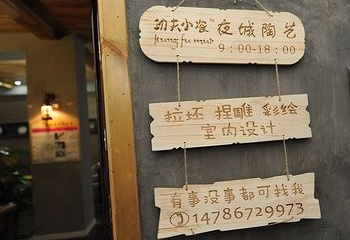 功夫小泥™ 夜城陶艺
kungfu mud
9:00-18:00
拉坯 捏雕 彩绘
室内设计
有事没事都可找我
14786729973